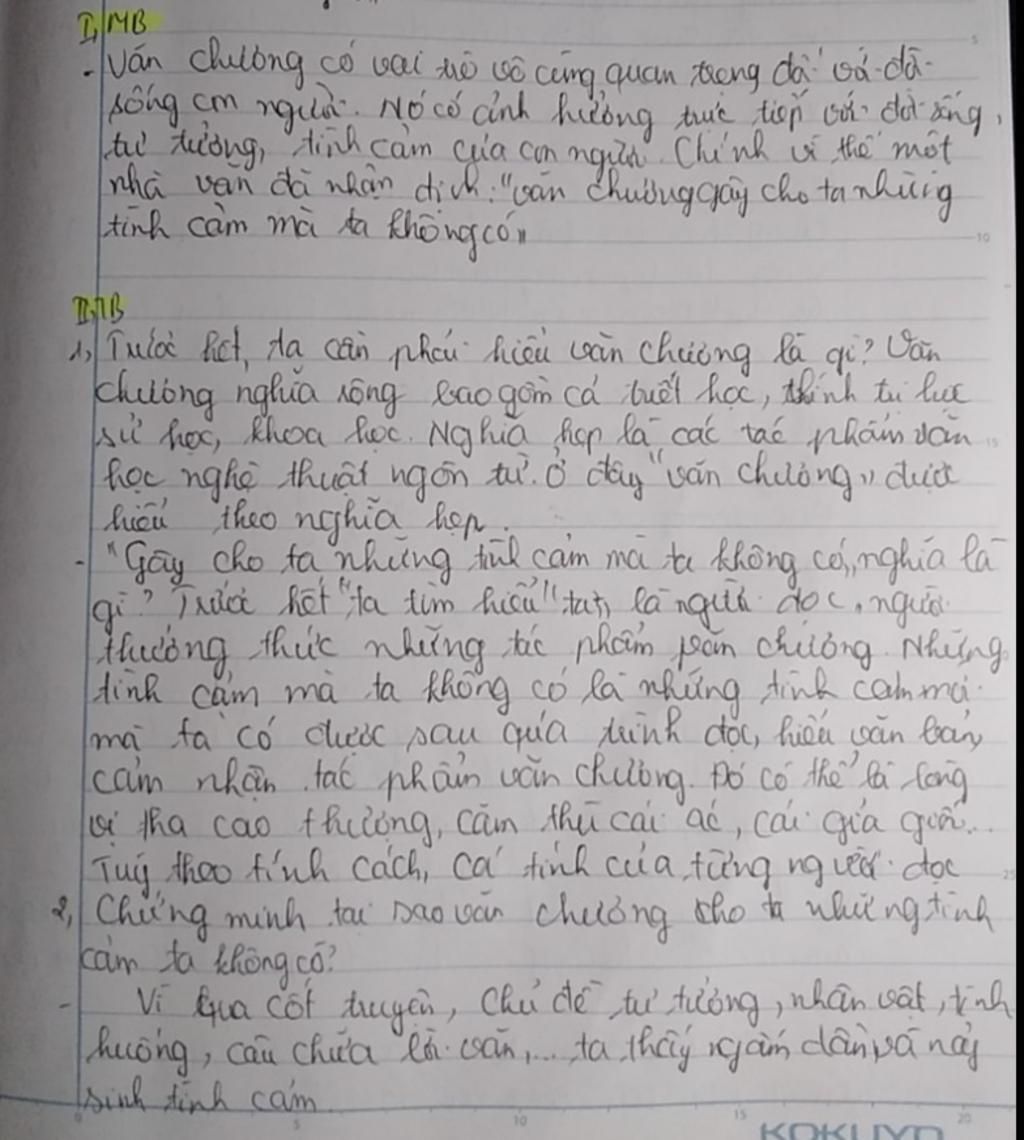 I, MB
- Văn chương có vai trò vô cùng quan trọng đối với đời
sống con người. Nó có ảnh hưởng trực tiếp với đời sống,
tư tưởng, tình cảm của con người. Chính vì thế một
nhà văn đã nhận định: "văn chương gây cho ta những
tình cảm mà ta không có"
II, TB
1, Trước hết, ta cần phải hiểu văn chương là gì? Văn
chương nghĩa rộng bao gồm cả triết học, chính trị
sử học, khoa học. Nghĩa hẹp là các tác phẩm văn
học nghệ thuật ngôn từ. Ở đây "văn chương" được
hiểu theo nghĩa hẹp.
- "Gây cho ta những tình cảm mà ta không có" nghĩa là
gì? Trước hết "ta tìm hiểu" "ta" là người đọc, người
thưởng thức những tác phẩm văn chương. Những
tình cảm mà ta không có là những tình cảm mới
mà ta có được sau quá trình đọc, hiểu văn bản,
cảm nhận tác phẩm văn chương. Đó có thể là lòng
vị tha cao thượng, căm thù cái ác, cái giả dối...
Tuỳ theo tính cách, cá tính của từng người đọc
2, Chứng minh tại sao văn chương cho ta những tình
cảm ta không có?
- Vì qua cốt truyện, chủ đề tư tưởng, nhân vật, tình
huống, câu chữ lời văn,... ta thấy ngấm dần và nảy
sinh tình cảm
5
10
15
20
KOKUYO